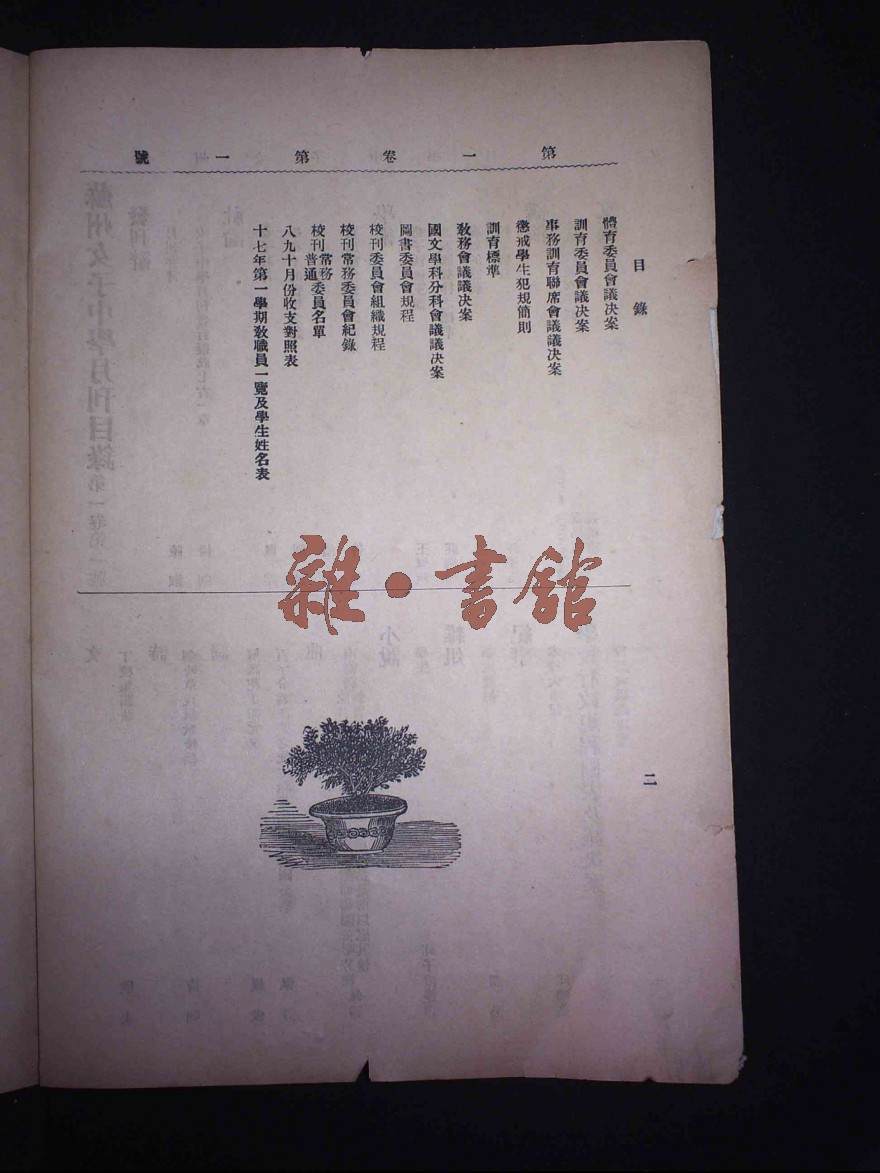 第一卷第一號
目錄
二
體育委員會議議決案
訓育委員會議決案
事務訓育聯席會議議決案
懲戒學生犯規簡則
訓育標準
敎務會議議決案
國文學科分科會議議決案
圖書委員會規程
校刊委員會組織規程
校刊常務委員會紀錄
校刊常務普通委員名單
八九十月份收支對照表
十七年第一學期敎職員一覽及學生姓名表
雜·書館